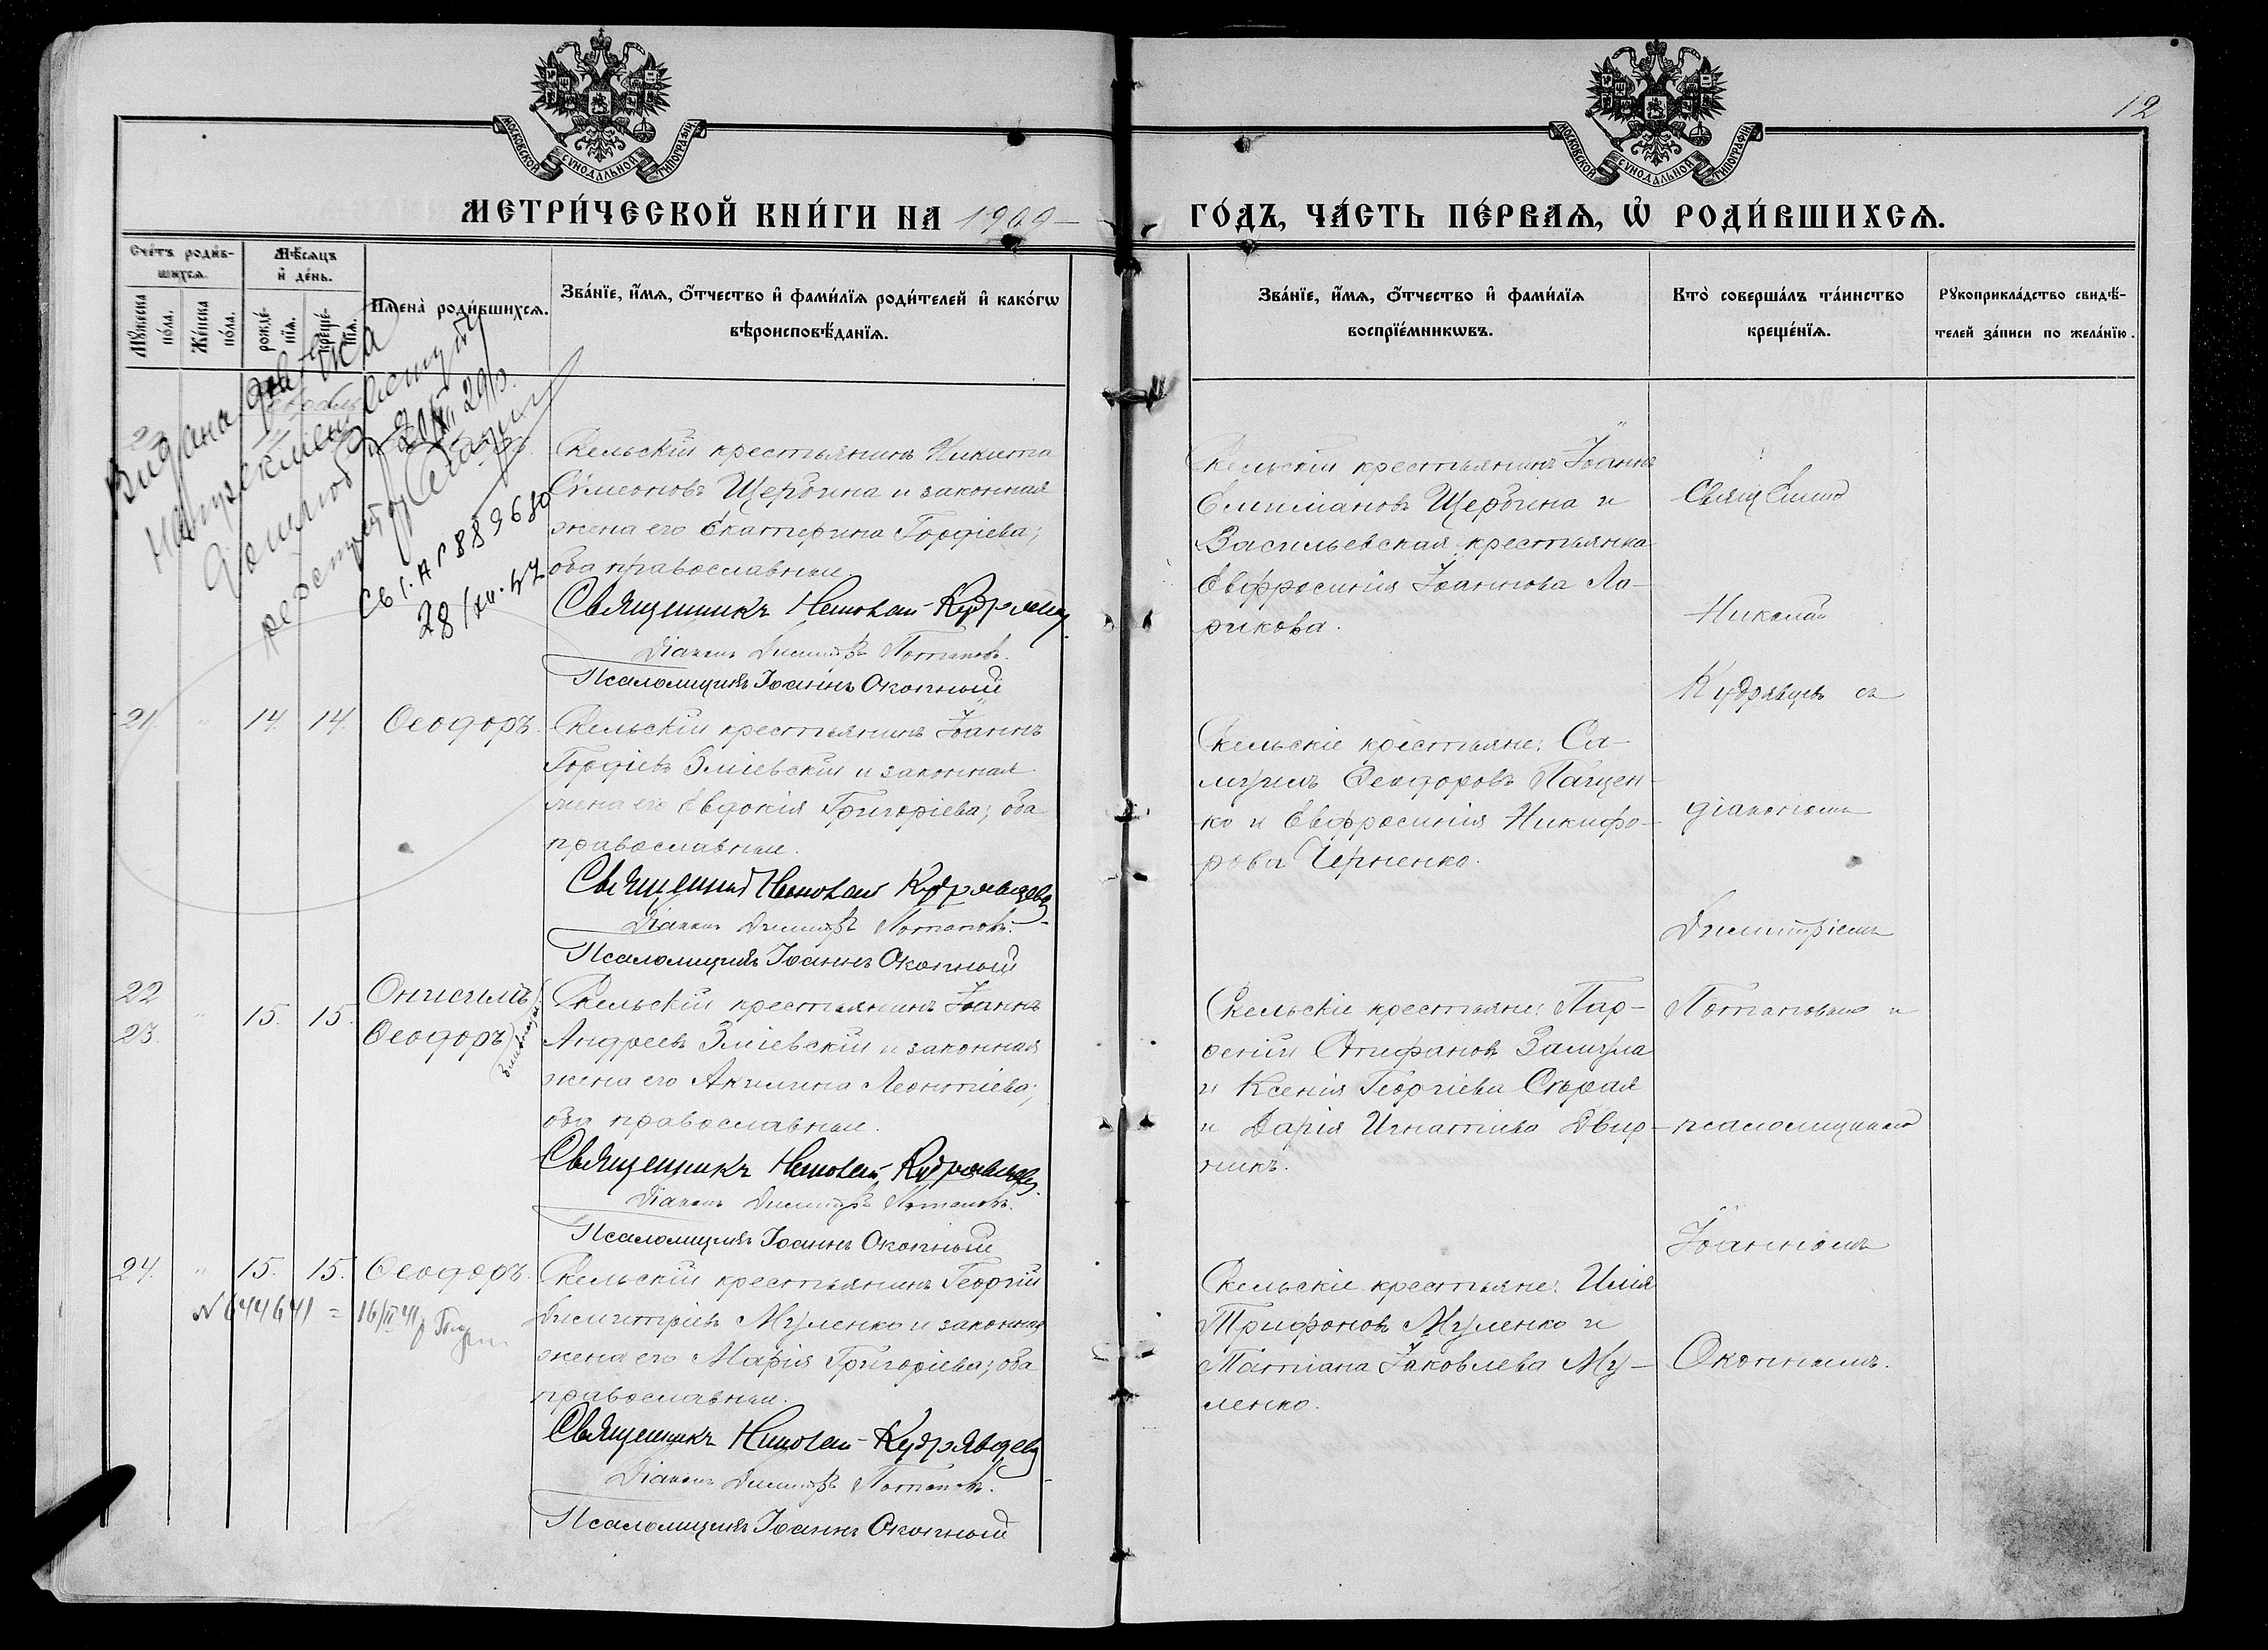 12
МОСКОВСКОЙ СѴНОДАЛЬНОЙ ТИПОГРАФІИ
МОСКОВСКОЙ СѴНОДАЛЬНОЙ ТИПОГРАФІИ
МЕТРИ́ЧЕСКОЙ КНИ́ГИ НА 1909
ГО́ДЪ, ЧА́СТЬ ПЕ́РВАѦ, Ѡ РОДИ́ВШИХСѦ.
Сче́тъ роди́в-
шихсѧ.
Мꙋ́жеска по́ла.
Же́нска по́ла.
Мѣ́сяцъ
и҆ де́нь.
рожде́-
нїѧ.
креще́-
нїѧ.
И҆мена̀ роди́вшихсѧ.
Зва́нїе, и҆́мѧ, ѻ҆́тчество и҆ фами́лїѧ роди́телей и҆ како́гѡ
вѣроисповѣ́данїѧ.
Зва́нїе, и҆́мѧ, ѻ҆́тчество и҆ фами́лїѧ
воспрїе́мникѡвъ.
Кто̀ соверша́лъ та́инство
креще́нїѧ.
Рꙋкоприкла́дство свидѣ́-
телей за́писи по жела́нїю.
Видана
28/XII.47
Скельскій крестьянинъ Никита
Сѵмеоновъ Щербина и законная
жена его Екатерина Гордіева;
оба православные.
Священникъ Николай Кудрявцев
Діаконъ Димитрій Потаповъ.
Псаломщикъ Іоаннъ Окопный
Скельскій крестьянинъ Іоаннъ
Емиліановъ Щербина и
Васильевская крестьянка
Евфросинія Іоаннова Ла-
рикова.
Священник
Николай
Кудрявцевъ съ
21. " 14. 14. Ѳеодоръ.
Скельскій крестьянинъ Іоаннъ
Гордіевъ Зміевскій и законная
жена его Евдокія Григоріева; оба
православные.
Священник Николай Кудрявцевъ
Діаконъ Димитрій Потаповъ.
Псаломщикъ Іоаннъ Окопный
Скельскіе крестьяне: Са-
муилъ Ѳеодоровъ Пащен-
ко и Евфросинія Никифо-
рова Черненко.
діакономъ
Димитріемъ
22
23. " 15. 15. Онисимъ
Ѳеодоръ близнецы
Скельскій крестьянинъ Іоаннъ
Андреевъ Зміевскій и законная
жена его Акилина Леонтіева;
оба православные.
Священникъ Николай Кудрявцевъ
Діаконъ Димитрій Потаповъ.
Псаломщикъ Іоаннъ Окопный
Скельскіе крестьяне: Пар-
ѳеній Епифановъ
и Ксенія Георгіева Сѣрая
и Дарія Игнатіева Двор-
никъ.
Потаповымъ и
псаломщикомъ
Іоанномъ
24. " 15. 15. Ѳеодоръ.
N 644641 = 16/II 41
Скельскій крестьянинъ Георгій
Димитріевъ Муленко и законная
жена его Марія Григоріева; оба
православные.
Священникъ Николай Кудрявцевъ
Діаконъ Димитрій Потаповъ.
Псаломщикъ Іоаннъ Окопный
Скельскіе крестьяне: Илія
Трифоновъ Муленко и
Татіана Іаковлева Му-
ленко.
Окопнымъ.